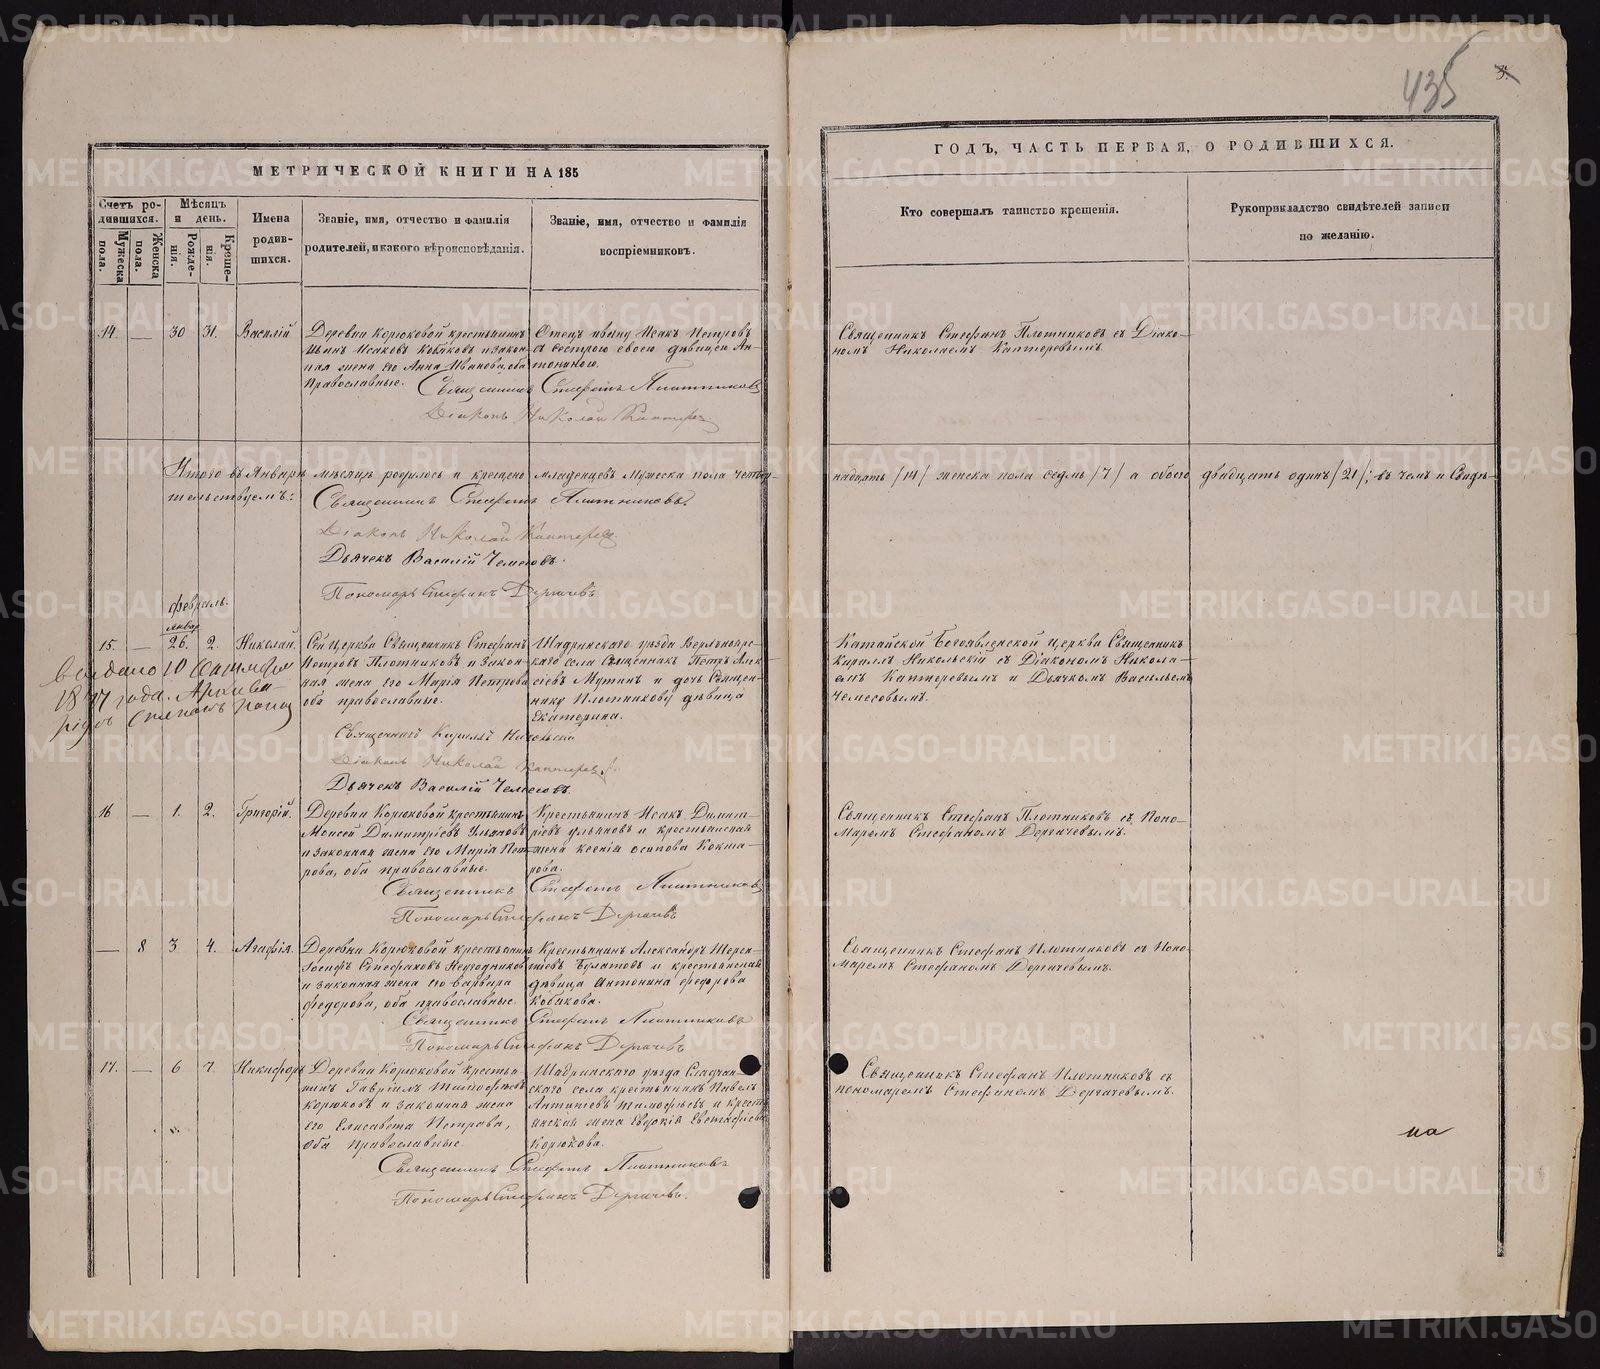 435
МЕТРИЧЕСКОЙ КНИГИ НА 185
ГОДЪ, ЧАСТЬ ПЕРВАЯ, О РОДИВШИХСЯ.
Счетъ ро-
дившихся.
Мужеска
пола.
Женска
пола.
Мѣсяцъ
и день.
Рожде-
нія.
Креще-
нія.
Имена
родив-
шихся.
Званіе, имя, отчество и фамилія
родителей, и какого вѣроисповѣданія.
Званіе, имя, отчество и фамилія
воспріемниковъ.
Кто совершалъ таинство крещенія.
Рукоприкладство свидѣтелей записи
по желанію.
14. — 30 31. Василій
Деревни Корюковой крестьянинъ
Иванъ Исаковъ Кобяковъ и закон-
ная жена его Анна Иванова, оба
православные.
Отецъ ивану Исакъ Петровъ
съ сестрою своею дѣвицею Ан-
тониною.
Священникъ Стефанъ Плотниковъ
Діаконъ Николай Каптеревъ
Священникъ Стефанъ Плотниковъ съ Діако-
номъ Николаемъ Каптеревымъ.
Итого въ Январѣ мѣсяцѣ родилось и крещено младенцевъ мужеска пола четыр-
надцать /14/ женска пола седмь /7/ а обоего двадцать одинъ /21/; въ чемъ и свидѣ-
тельствуемъ:
Священникъ Стефанъ Плотниковъ.
Діаконъ Николай Каптеревъ.
Дьячекъ Василій Чемесовъ.
Пономарь Стефанъ Дергачевъ
февраль.
январ.
15. — 26. 2. Николай.
Сей Церкви Священникъ Стефанъ
Петровъ Плотниковъ и закон-
ная жена его Марія Петрова
оба православные.
Шадринскаго уѣзда
каго села Священникъ Петръ Алек-
сіевъ Мутинъ и дочь Священ-
нику Плотникову дѣвица
Екатерина.
Священникъ Кириллъ Никольскій
Діаконъ Николай Каптеревъ
Дьячекъ Василій Чемесовъ.
Катайской Богоявленской церкви Священникъ
Кириллъ Никольскій съ Діакономъ Никола-
емъ Каптеревымъ и Дьячкомъ Васильемъ
Чемесовымъ.
выдано 10
18 7 года.
16 — 1. 2. Григорій.
Деревни Корюковой крестьянинъ
Моисей Димитріевъ Ульяновъ
и законная жена его Марія Пет-
рова, оба православные.
Крестьянинъ Исакъ Димит-
ріевъ ульяновъ и крестьянская
жена ксенія осипова Кокша-
рова.
Священникъ Стефанъ Плотниковъ
Пономарь Стефанъ Дергачевъ
Священникъ Стефанъ Плотниковъ съ Поно-
маремъ Стефаномъ Дергачевымъ.
— 8 3 4. Агафія.
Деревни Корюковой крестьянинъ
Іосифъ Стефановъ
и законная жена его варвара
федорова, оба православные.
Крестьянинъ Александръ Терен-
тіевъ Булатовъ и крестьянская
дѣвица Антонина федорова
Кобякова.
Священникъ Стефанъ Плотниковъ
Пономарь Стефанъ Дергачевъ
Священникъ Стефанъ Плотниковъ съ Поно-
маремъ Стефаномъ Дергачевымъ.
17. — 6 7. Никифоръ
Деревни Корюковой кресть-
нинъ Гавріилъ Тимофѣевъ
Корюковъ и законная жена
его Елисавета Петрова,
оба православные.
Шадринскаго уѣзда
скаго села крестьянинъ Павелъ
Антипіевъ Тимофѣевъ и кресть-
янская жена Евдокія
Корюкова.
Священникъ Стефанъ Плотниковъ
Пономарь Стефанъ Дергачевъ.
Священникъ Стефанъ Плотниковъ съ
пономаремъ Стефаномъ Дергачевымъ.
на
METRIKI.GASO-URAL.RU